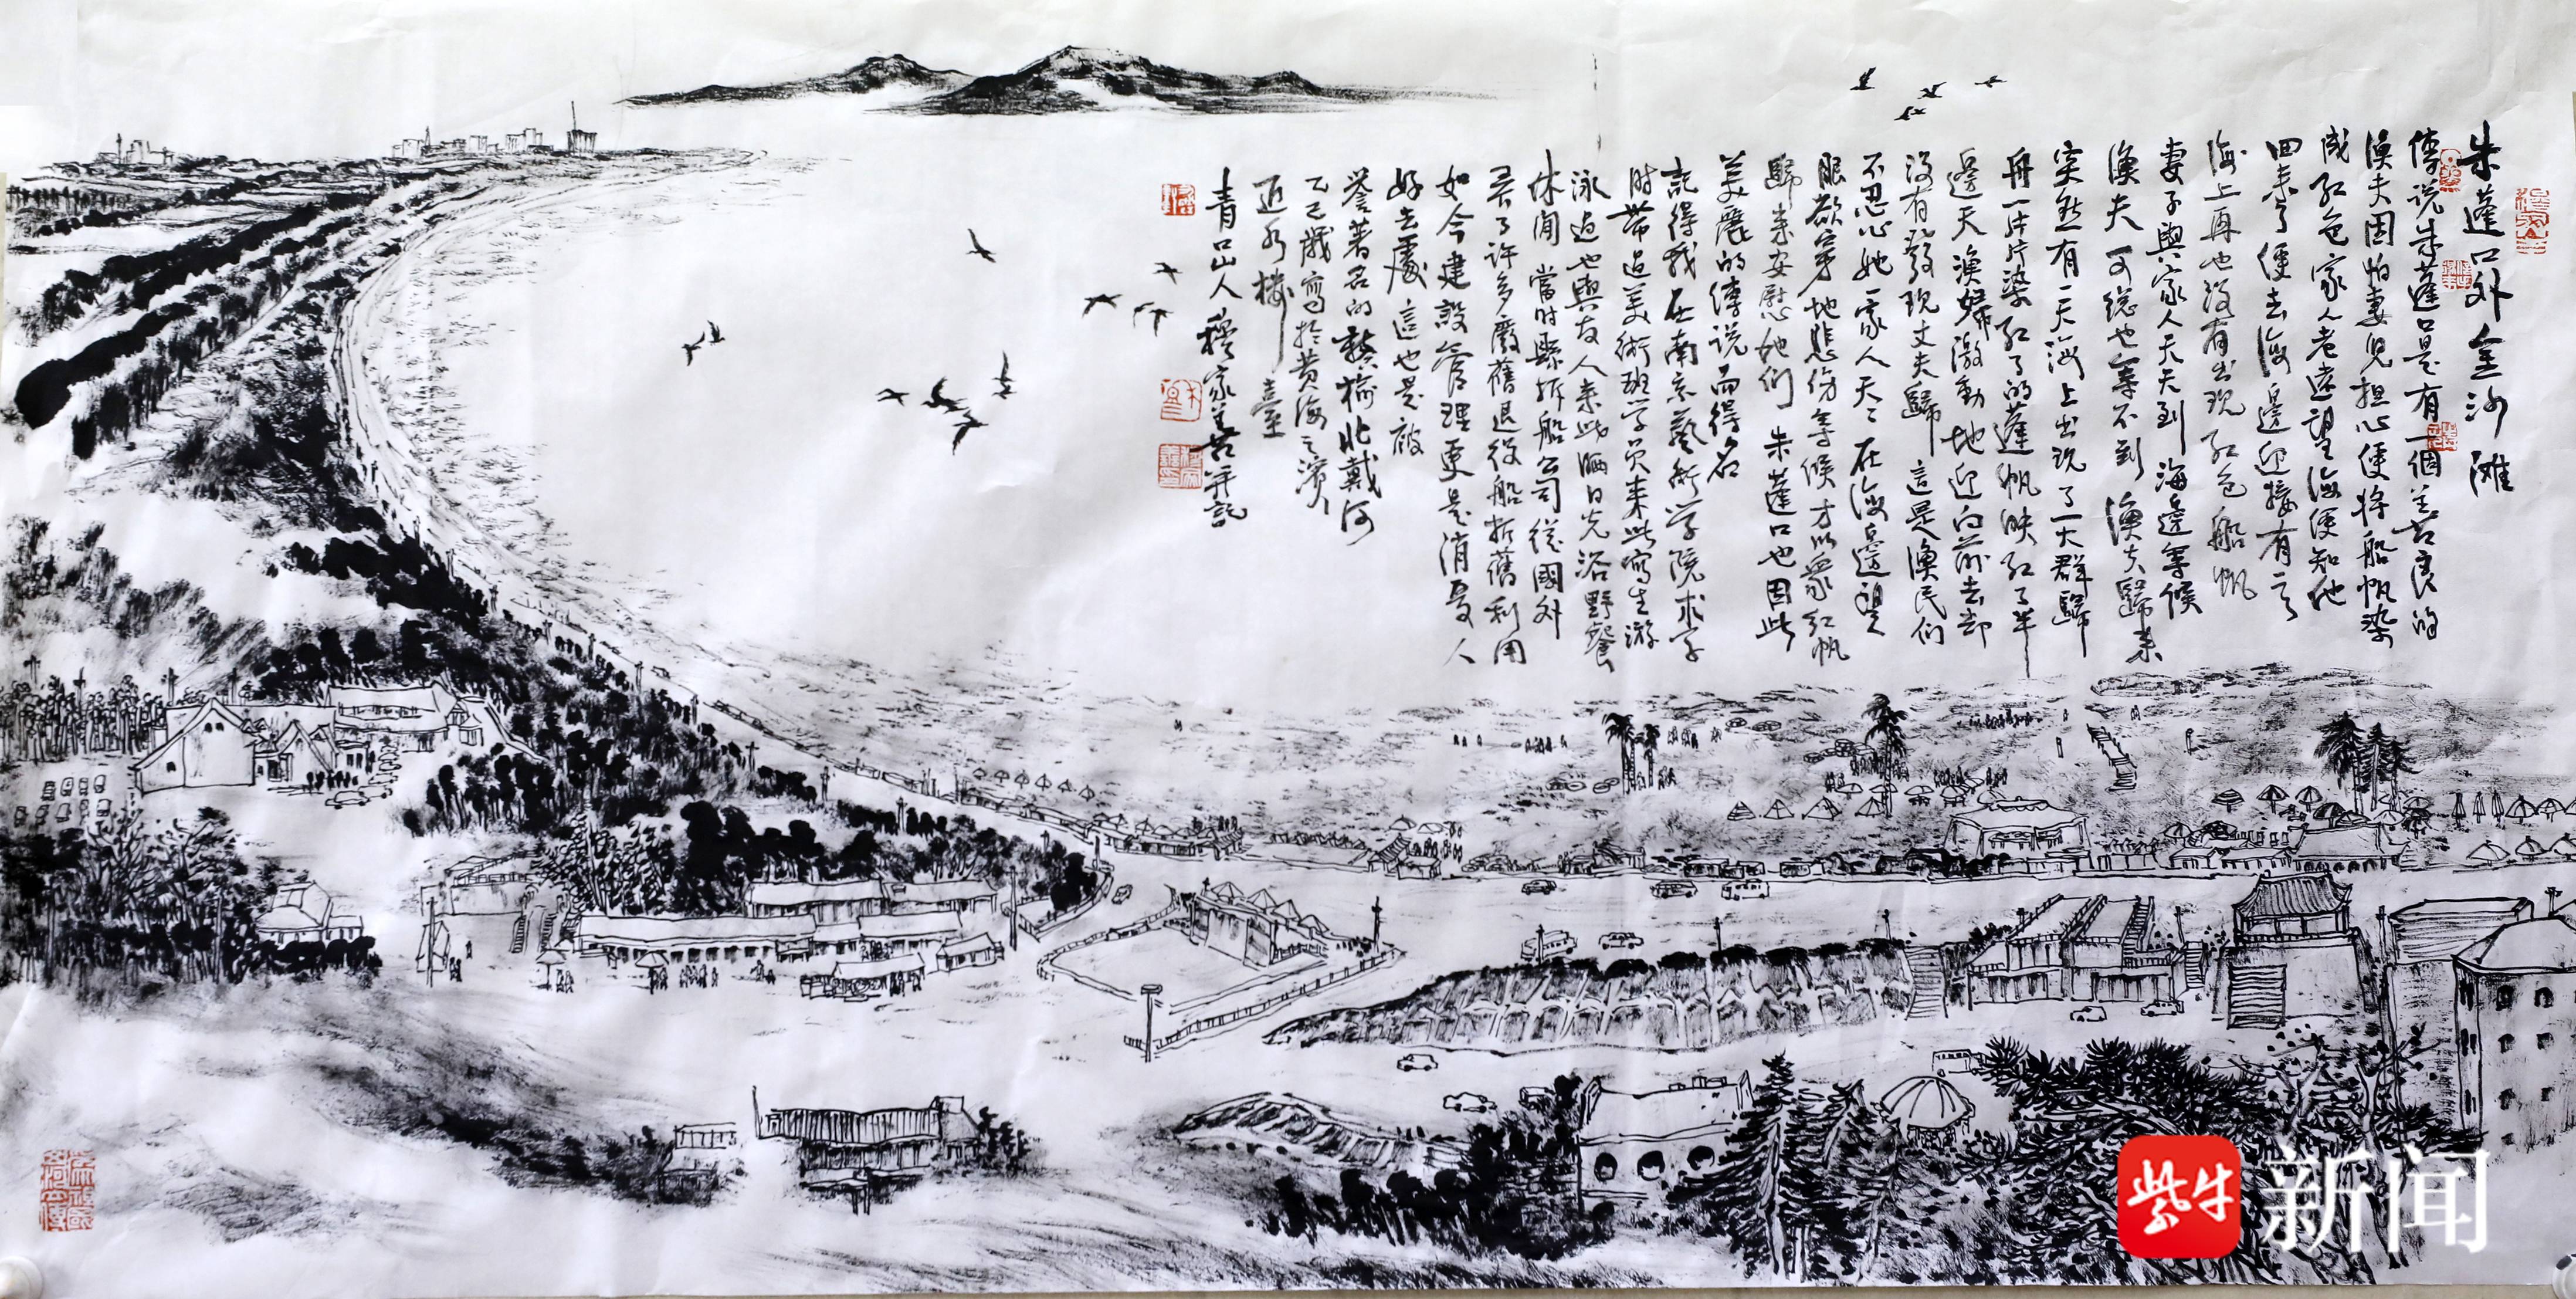 朱蓬口外金沙滩
傳说朱蓬口是有一個善良的
漁夫因怕妻兒担心便将船帆染
成红色家人老遠望海便知他
回来了便去海邊迎接有一天
海上再也没有出现红色船帆
妻子與家人天天到海邊等候
漁夫可总也等不到漁夫歸来
突然有一天海上出现了一大群歸
舟一片片染红了的蓬帆映红了半
邊天漁婦激動地迎向前去却
没有發现丈夫歸這是漁民们
不忍心她一家人天天在海邊望
眼欲穿地悲伤等候才以眾红帆
歸来安慰她们朱蓬口也因此
美麗的傳说而得名
記得我在南京藝術学院求学
时带过美術班学员来此寫生游
泳过也與友人来此晒日光浴野餐
休闲當时縣拆船公司從國外
弄了许多廢舊退役船拆舊利用
如今建設管理更是消夏人
好去處這也是被
誉著名的贛榆北戴河
乙巳歲寫於黄海之濱
近水楼臺
青口山人穆家善并記
紫牛
新闻